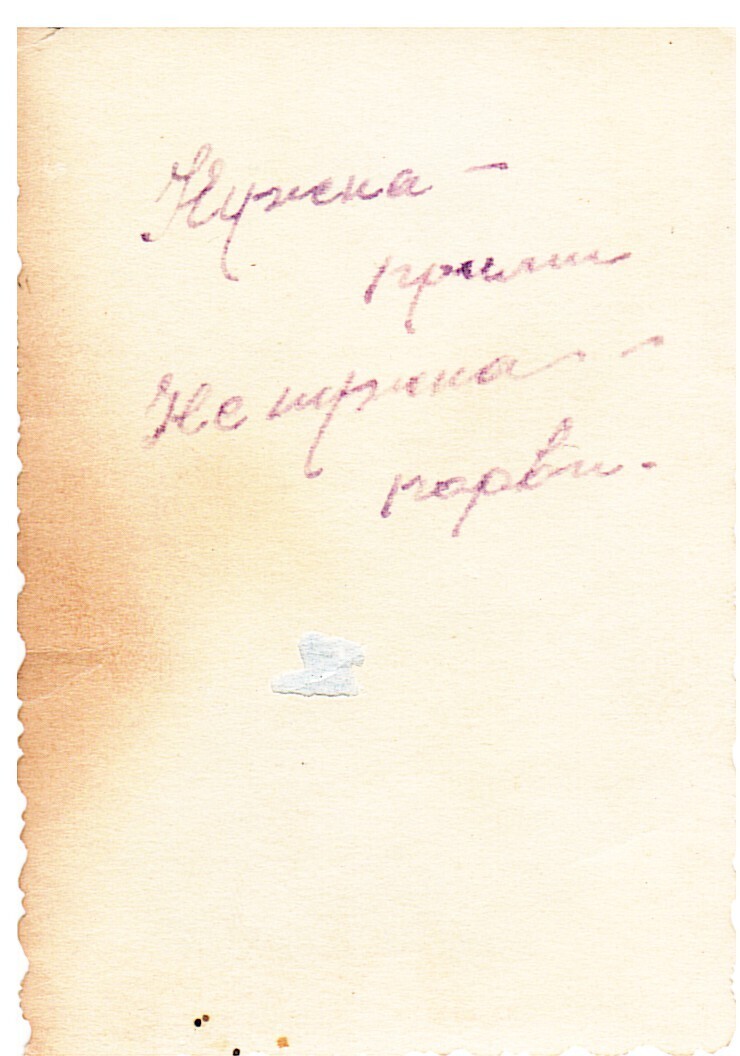 Нужна -
прими
Не нужна -
порви.